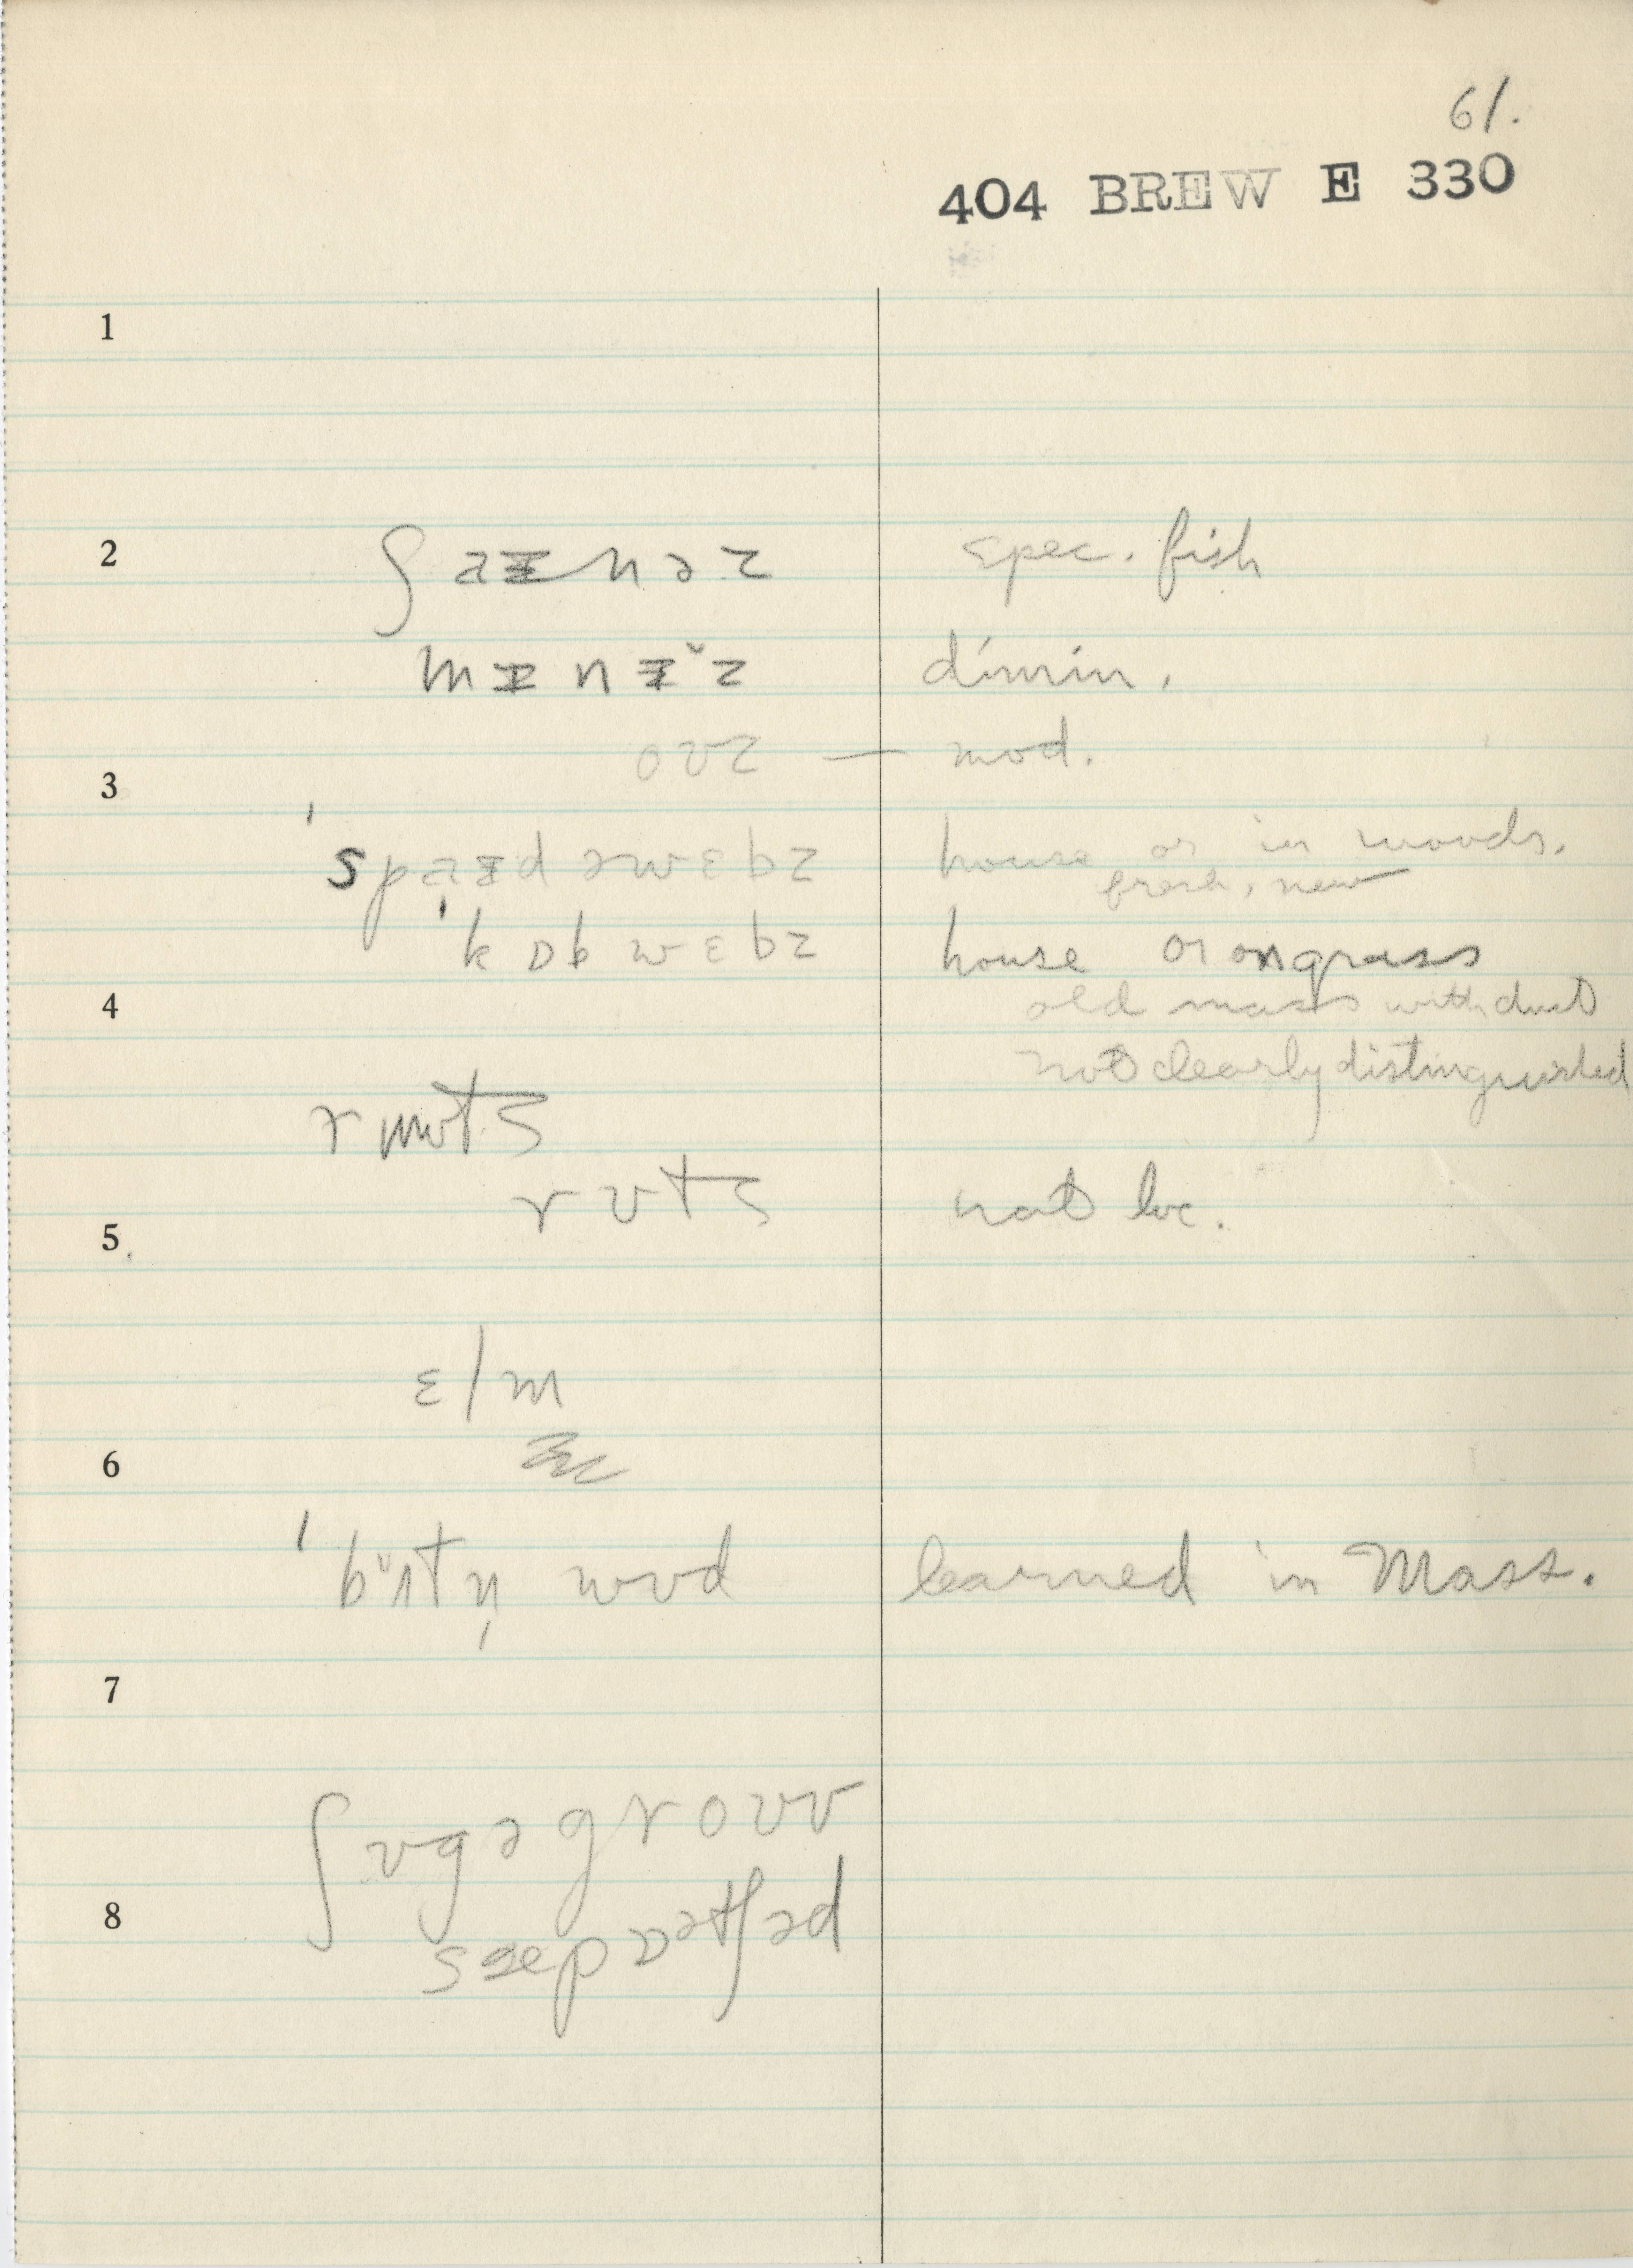 61.
404 BREW E 330
1
2 ʃaɪnəz spec. fish
mɪnɪˇz dimin.
oʊz — mod.
3
ˈspaɪdəwɛbz house or in woods.
fresh, new
ˈkɒbwɛbz house or on grass
4 old mass with dust
not clearly distinguished
rʊts
rʊts not loc.
5
ɛlm
6
ˈbʌtn̩ wʊd learned in Mass.
7
ʃʊgəgroʊv
8
sæepɒətʃəd